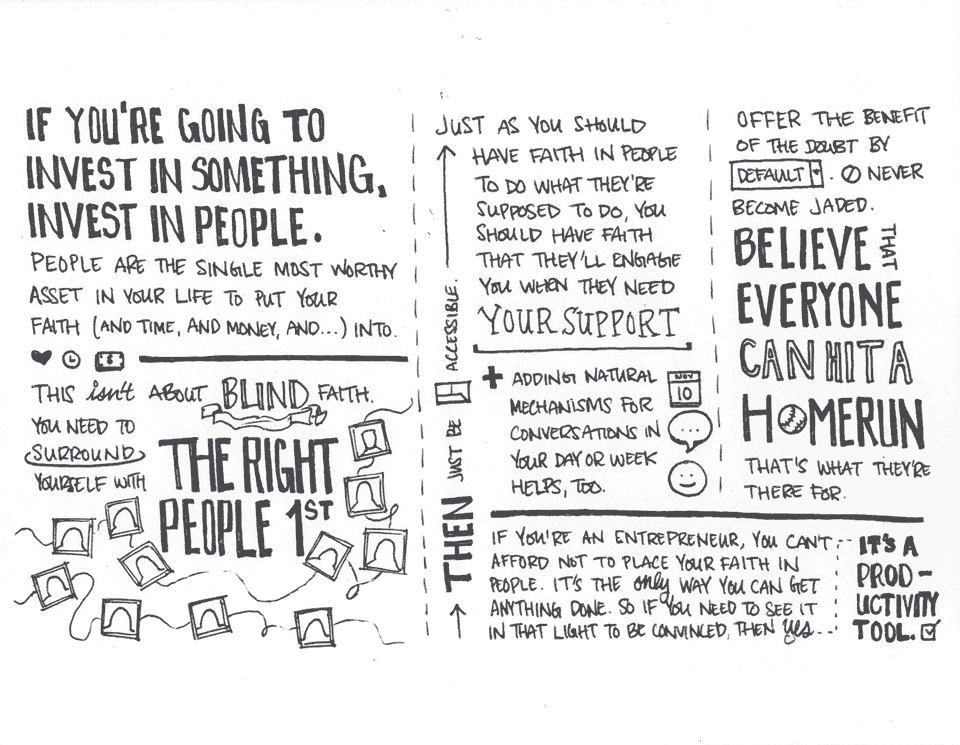 IF YOU'RE GOING TO
INVEST IN SOMETHING,
INVEST IN PEOPLE.
PEOPLE ARE THE SINGLE MOST WORTHY
ASSET IN YOUR LIFE TO PUT YOUR
FAITH (AND TIME, AND MONEY, AND...) INTO.
THIS isn't ABOUT BLIND FAITH.
YOU NEED TO
SURROUND
YOURSELF WITH
THE RIGHT
PEOPLE 1ST
THEN JUST BE ACCESSIBLE.
JUST AS YOU SHOULD
HAVE FAITH IN PEOPLE
TO DO WHAT THEY'RE
SUPPOSED TO DO, YOU
SHOULD HAVE FAITH
THAT THEY'LL ENGAGE
YOU WHEN THEY NEED
YOUR SUPPORT
+ ADDING NATURAL
MECHANISMS FOR
CONVERSATIONS IN
YOUR DAY OR WEEK
HELPS, TOO.
NOV
10
OFFER THE BENEFIT
OF THE DOUBT BY
DEFAULT. NEVER
BECOME JADED.
BELIEVE THAT
EVERYONE
CAN HIT A
HOMERUN
THAT'S WHAT THEY'RE
THERE FOR.
IF YOU'RE AN ENTREPRENEUR, YOU CAN'T
AFFORD NOT TO PLACE YOUR FAITH IN
PEOPLE. IT'S THE only WAY YOU CAN GET
ANYTHING DONE. SO IF YOU NEED TO SEE IT
IN THAT LIGHT TO BE CONVINCED, THEN yes...
IT'S A
PROD-
UCTIVITY
TOOL.